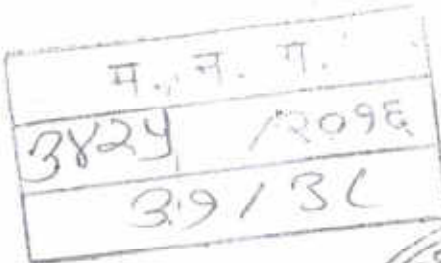 म. न. न.
३४२५ /२०१६
३१ / ३८